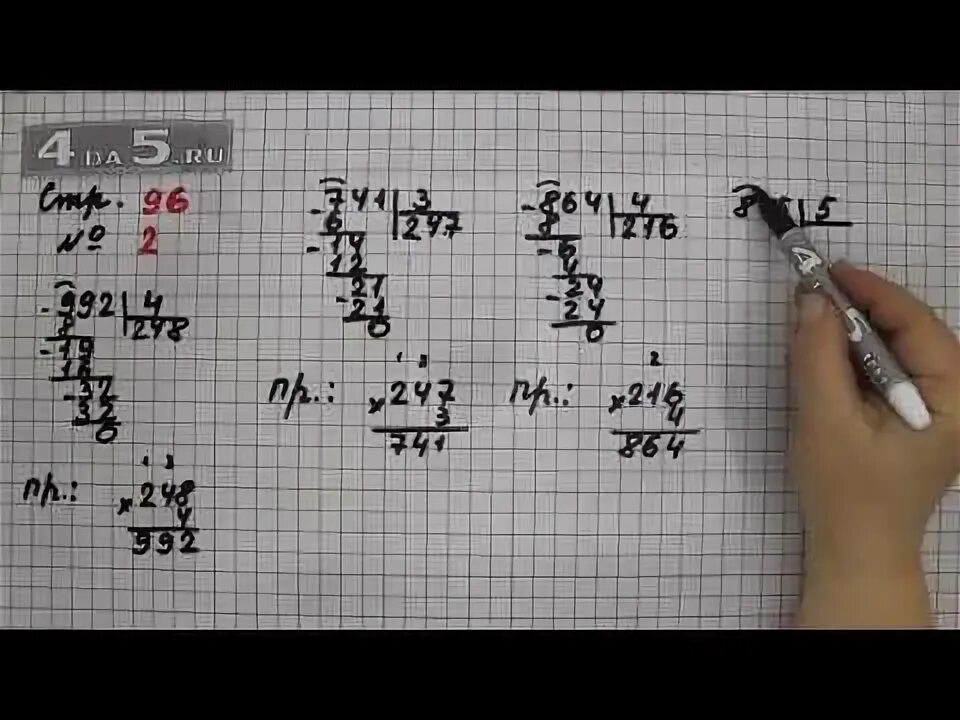 4DA5.RU
Стр. 96
№ 2
- 992 | 4
8 | 248
- 19
16
- 32
32
0
пр.: ¹ ³
× 248
4
992
- 741 | 3
6 | 247
- 14
12
- 21
21
0
пр.: ¹ ²
× 247
3
741
- 864 | 4
8 | 216
- 6
4
- 24
24
0
пр.: ²
× 216
4
864
8 5 | 5